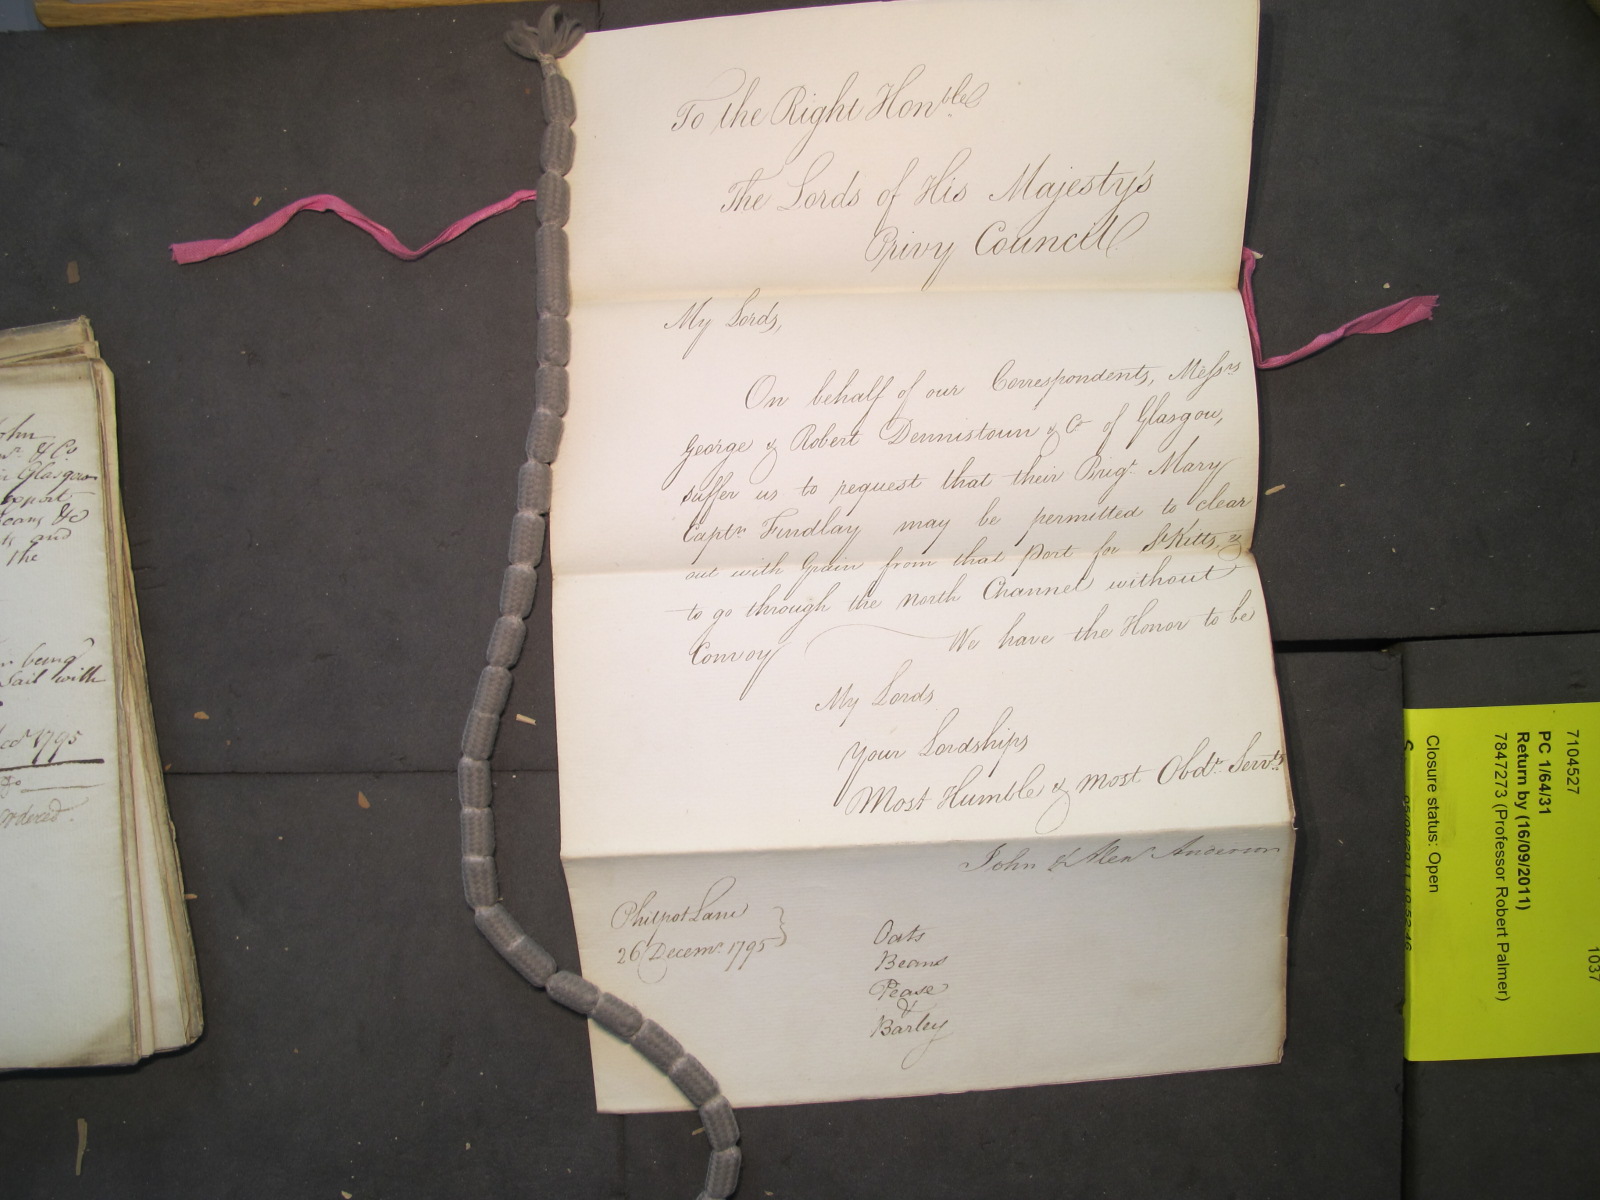 To the Right Honble
The Lords of His Majesty's
Privy Council
My Lords,
On behalf of our Correspondents, Messrs
George & Robert Dennistoun & Co of Glasgow,
suffer us to request that their Brigt. Mary
Captn. Findlay may be permitted to clear
out with Grain from that Port for St Kitts, &
to go through the North Channel without
Convoy We have the Honor to be
My Lords
Your Lordships
Most Humble & most Obdt. Servts
John & Alexr Anderson
Philpot Lane
26 Decemr. 1795
Oats
Beans
Pease
&
Barley
ohn
& Co.
Glasgow
export
eans &c
ts and
the
being
Sail with
1795
ordered.
7104527
PC 1/64/31
Return by (16/09/2011)
7847273 (Professor Robert Palmer)
Closure status: Open
1037